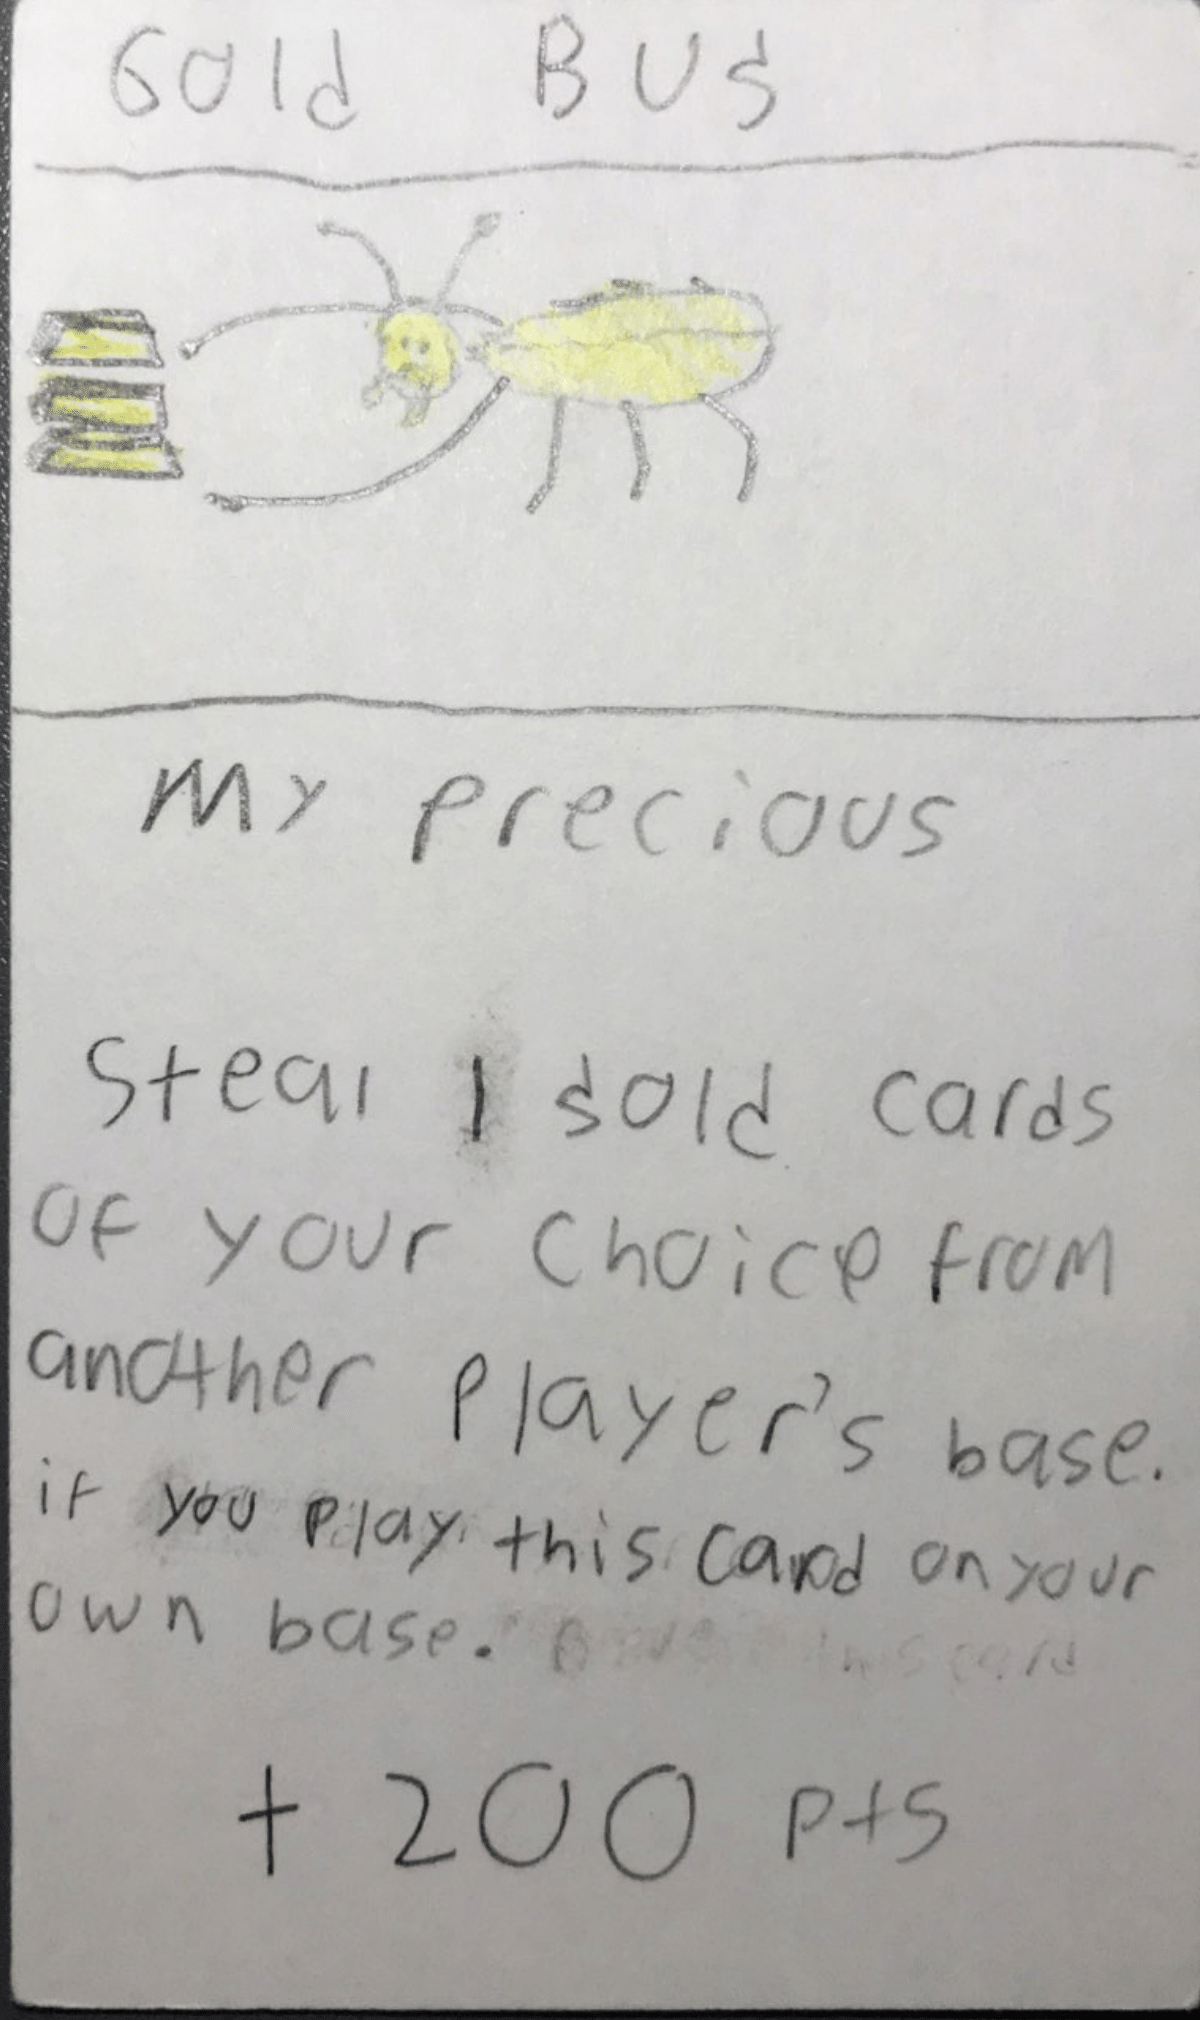 Gold Bug
My precious
Steal 1 gold cards
of your choice from
another player's base.
if you play this card on your
own base.
this card
+ 200 pts